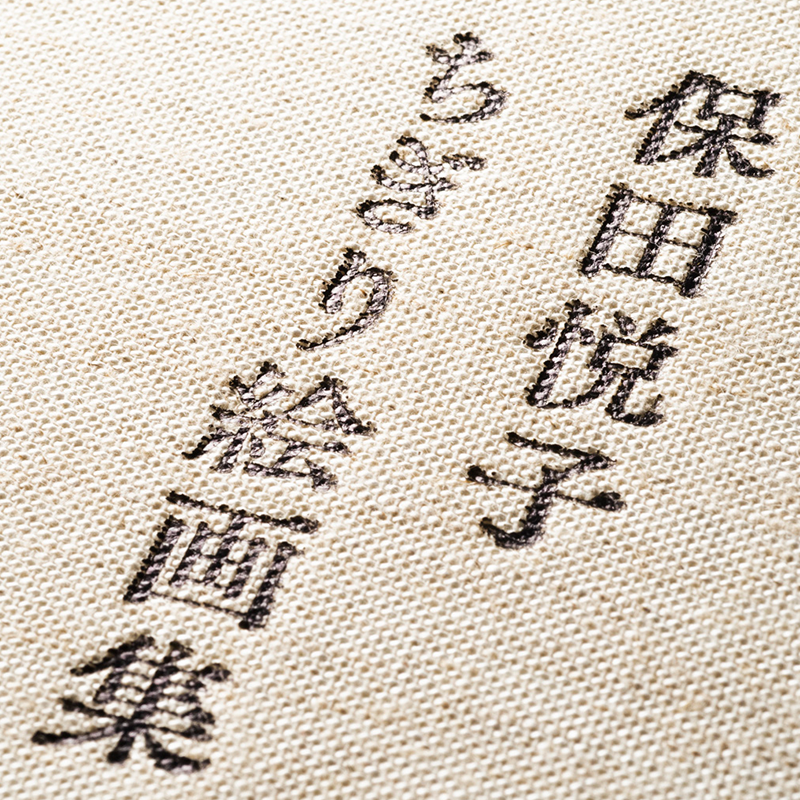 保田悦子
ちぎり絵画集